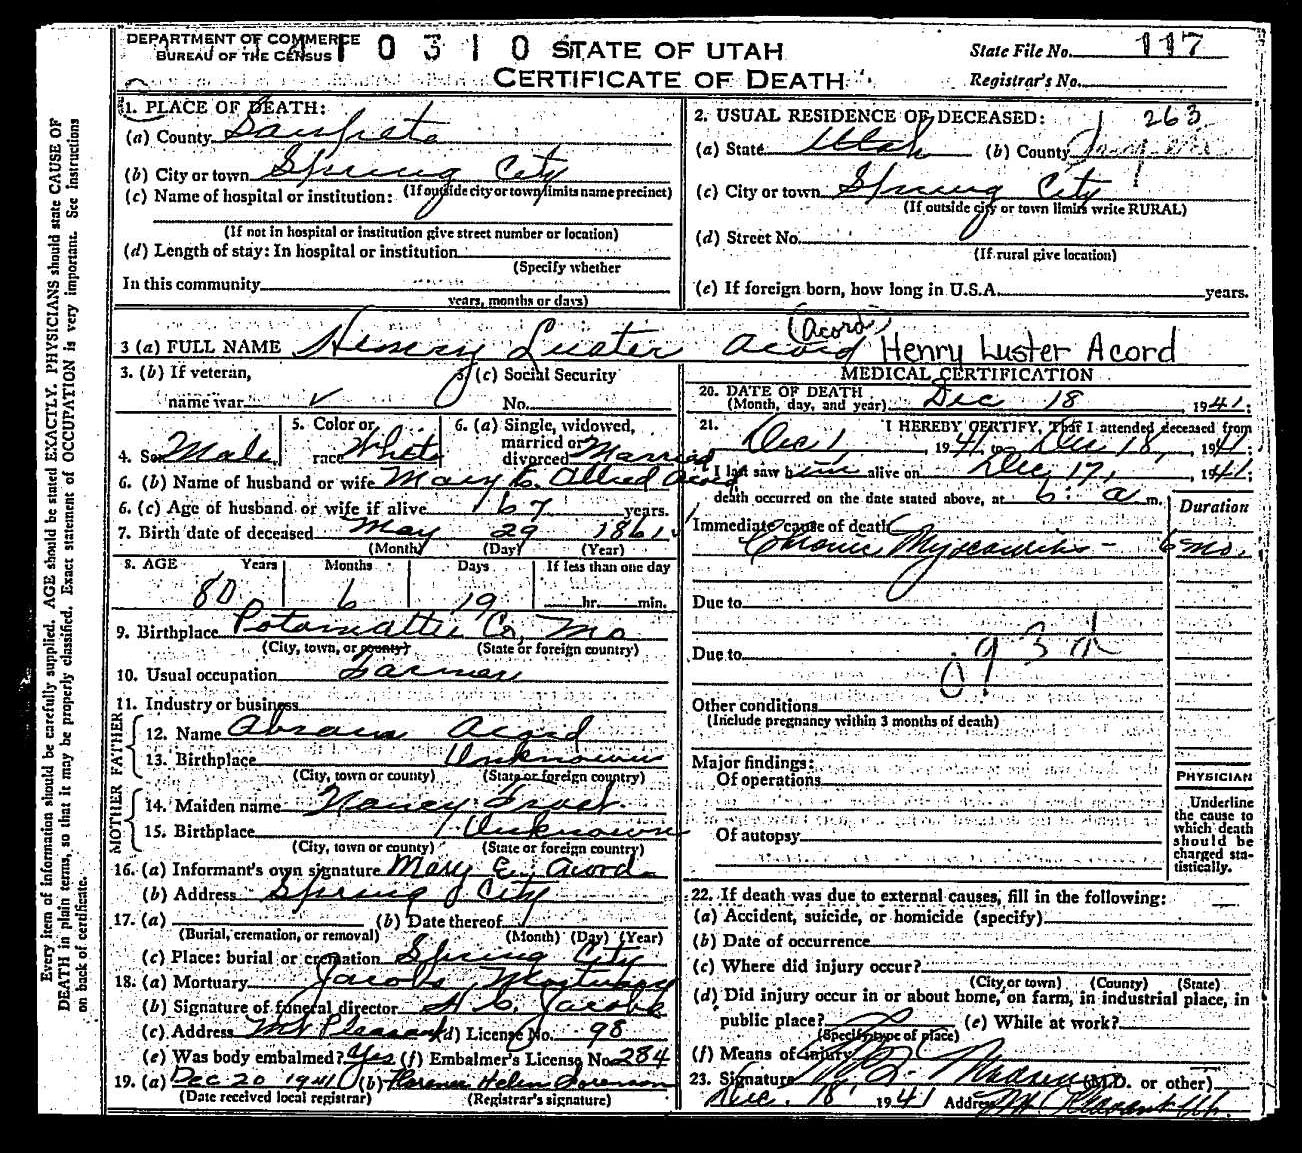 DEPARTMENT OF COMMERCE
BUREAU OF THE CENSUS
10310
STATE OF UTAH
CERTIFICATE OF DEATH
State File No. 117
Registrar's No.
Every item of information should be carefully supplied. AGE should be stated EXACTLY. PHYSICIANS should state CAUSE OF
DEATH in plain terms, so that it may be properly classified. Exact statement of OCCUPATION is very important. See instructions
on back of certificate.
1. PLACE OF DEATH:
(a) County Sanpete
(b) City or town Spring City
(If outside city or town limits name precinct)
(c) Name of hospital or institution:
(If not in hospital or institution give street number or location)
(d) Length of stay: In hospital or institution
(Specify whether
In this community
years, months or days)
2. USUAL RESIDENCE OF DECEASED: 263
(a) State Utah (b) County Sanpete
(c) City or town Spring City
(If outside city or town limits write RURAL)
(d) Street No.
(If rural give location)
(e) If foreign born, how long in U.S.A. years.
(Acord)
3 (a) FULL NAME Henry Luster Acord Henry Luster Acord
3. (b) If veteran,
name war
3. (c) Social Security
No.
4. Sex Male
5. Color or
race White
6. (a) Single, widowed,
married or
divorced Married
6. (b) Name of husband or wife Mary E. Allred Acord
6. (c) Age of husband or wife if alive 67 years.
7. Birth date of deceased May 29 1861
(Month) (Day) (Year)
8. AGE Years Months Days If less than one day
80 6 19 hr. min.
9. Birthplace Potamattie Co, Mo
(City, town, or county) (State or foreign country)
10. Usual occupation Farmer
11. Industry or business
FATHER
12. Name Abram Acord
13. Birthplace Unknown
(City, town or county) (State or foreign country)
MOTHER
14. Maiden name Nancy Frost
15. Birthplace Unknown
(City, town or county) (State or foreign country)
16. (a) Informant's own signature Mary E. Acord
(b) Address Spring City
17. (a) (b) Date thereof
(Burial, cremation, or removal) (Month) (Day) (Year)
(c) Place: burial or cremation Spring City
18. (a) Mortuary Jacobs Mortuary
(b) Signature of funeral director H C. Jacobs
(c) Address Mt Pleasant (d) License No. 98
(e) Was body embalmed? Yes (f) Embalmer's License No. 284
19. (a) Dec 20 1941 (b) Florence Helen Sorenson
(Date received local registrar) (Registrar's signature)
MEDICAL CERTIFICATION
20. DATE OF DEATH
(Month, day, and year) Dec 18, 1941;
21. I HEREBY CERTIFY, That I attended deceased from
Dec 1 1941 to Dec 18, 1941;
I last saw him alive on Dec 17, 1941;
death occurred on the date stated above, at 6: a m.
Duration
Immediate cause of death
Chronic Myocarditis - 6 mo.
Due to
Due to
93d
Other conditions
(Include pregnancy within 3 months of death)
Major findings:
Of operations
Of autopsy
PHYSICIAN
Underline
the cause to
which death
should be
charged sta-
tistically.
22. If death was due to external causes, fill in the following:
(a) Accident, suicide, or homicide (specify)
(b) Date of occurrence
(c) Where did injury occur?
(City or town) (County) (State)
(d) Did injury occur in or about home, on farm, in industrial place, in
public place? (e) While at work?
(Specify type of place)
(f) Means of injury
23. Signature Madsen (M.D. or other)
Dec. 18 1941 Address Mt. Pleasant Ut.